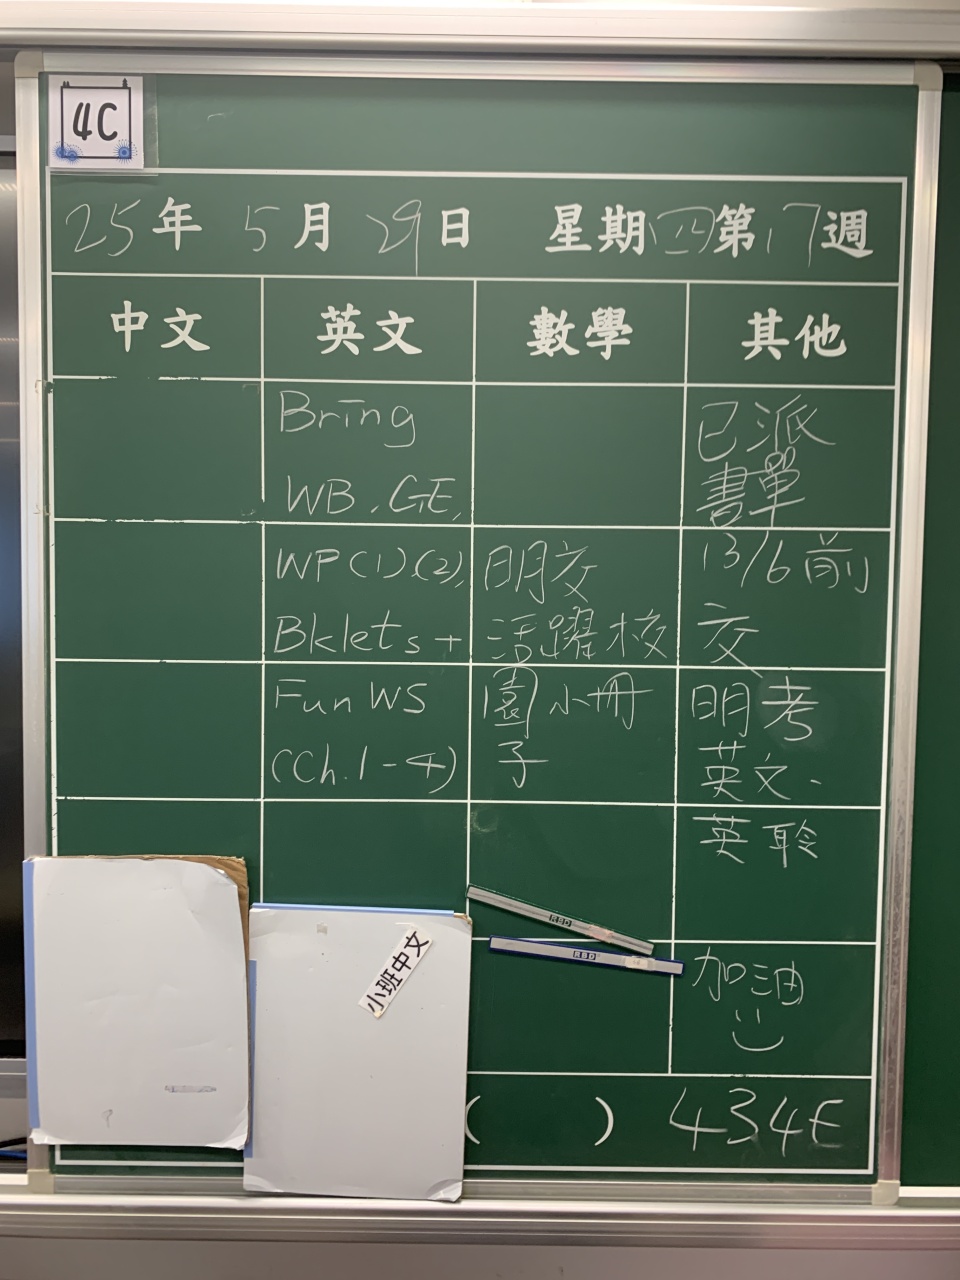 4C
25年 5月 29日 星期四第17週
中文 英文 數學 其他
Bring
WB, GE,
已派
書單
WP(1),(2),
Bklets +
明交
活躍校
13/6前
交
Fun WS
(Ch. 1-4)
園小冊
子
明考
英文、
英聆
RSD
RSD
小班中文
加油
( ) 434E